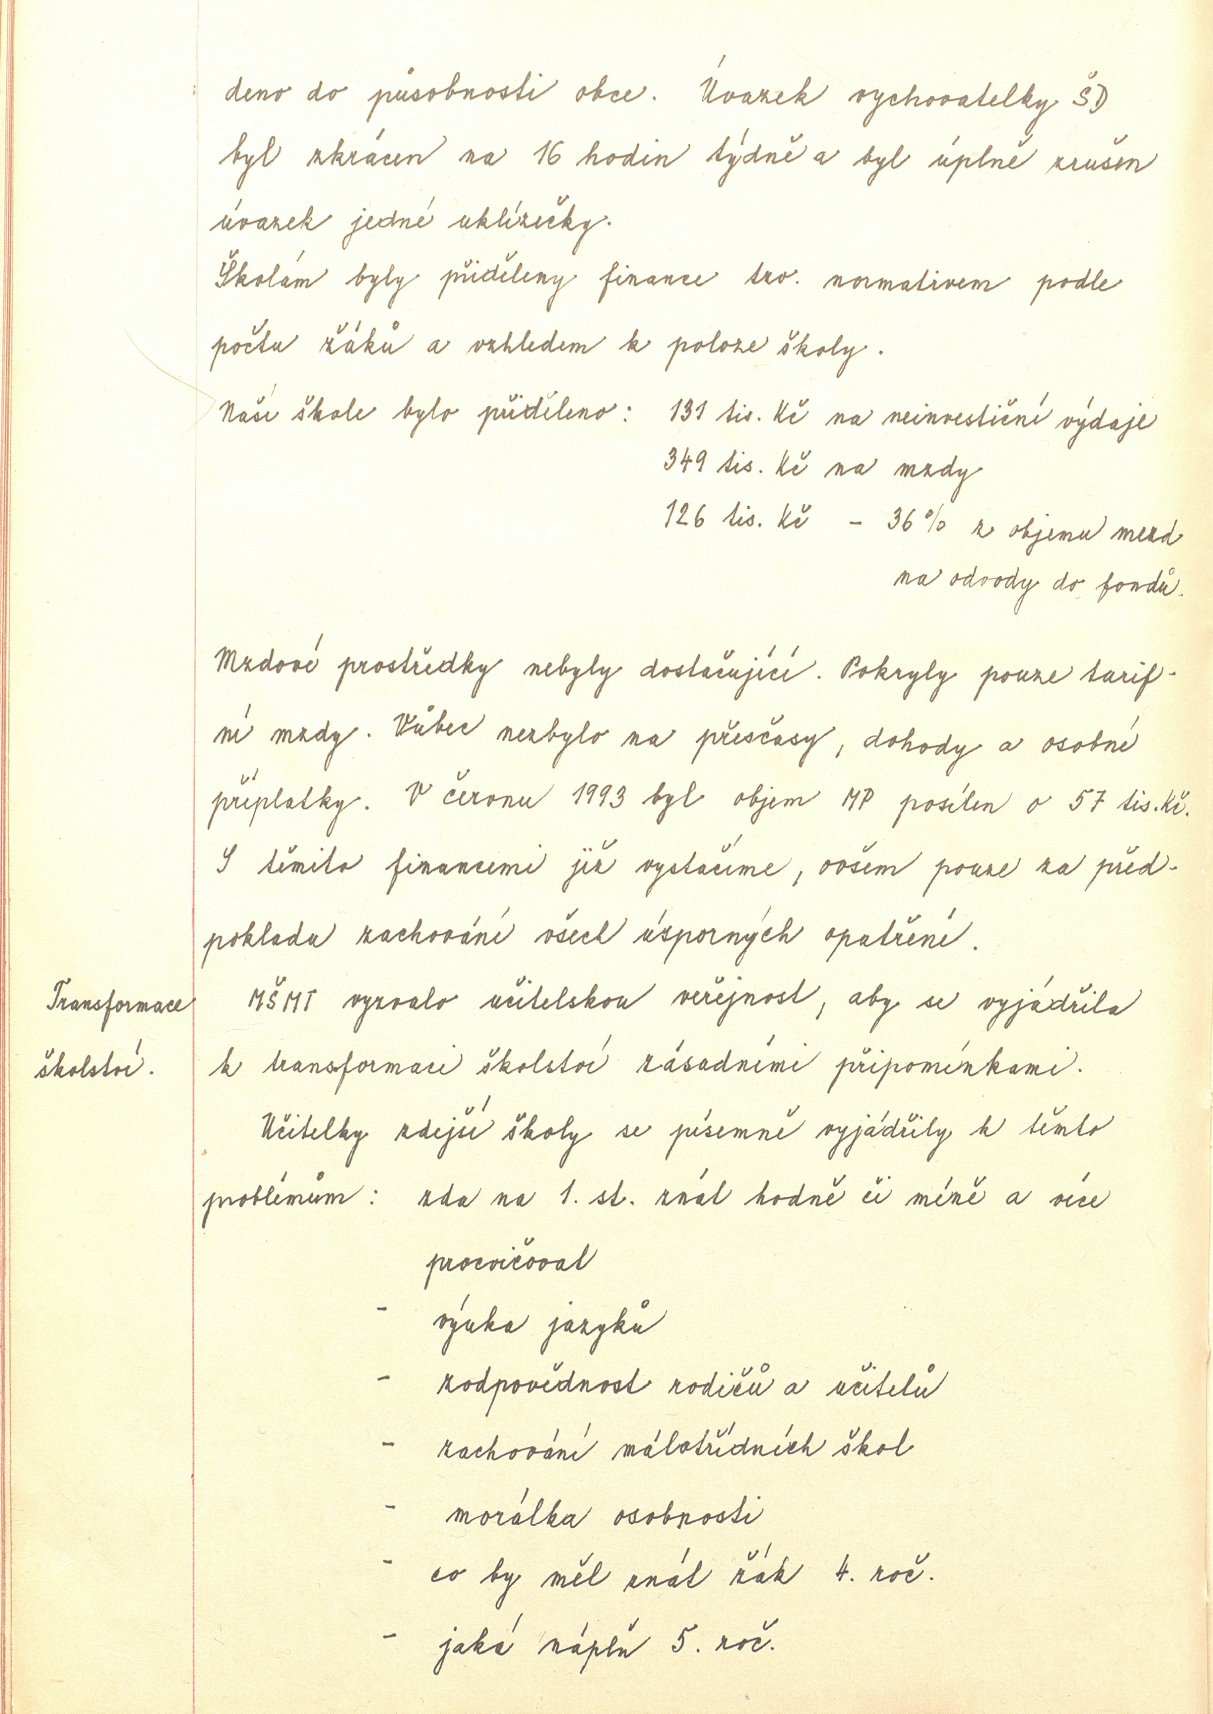 deno do působnosti obce. Úvazek vychovatelky ŠD
byl zkrácen na 16 hodin týdně a byl úplně zrušen
úvazek jedné uklízečky.
Školám byly přiděleny finance tzv. normativem podle
počtu žáků a vzhledem k poloze školy.
Naší škole bylo přiděleno: 131 tis. Kč na neinvestiční výdaje
349 tis. Kč na mzdy
126 tis. Kč – 36% z objemu mezd
na odvody do fondů.
Mzdové prostředky nebyly dostačující. Pokryly pouze tarif-
ní mzdy. Vůbec nezbylo na přesčasy, dohody a osobní
příplatky. V červnu 1993 byl objem MP posílen o 57 tis. Kč.
S těmito financemi již vystačíme, ovšem pouze za před-
pokladu zachování všech úsporných opatření.
Transformace
školství.
MŠMT vyzvalo učitelskou veřejnost, aby se vyjádřila
k transformaci školství zásadními připomínkami.
Učitelky zdejší školy se písemně vyjádřily k těmto
problémům: zda na 1. st. znát hodně či méně a více
procvičovat
- výuka jazyků
- zodpovědnost rodičů a učitelů
- zachování málotřídních škol
- morálka osobnosti
- co by měl znát žák 4. roč.
- jaká náplň 5. roč.